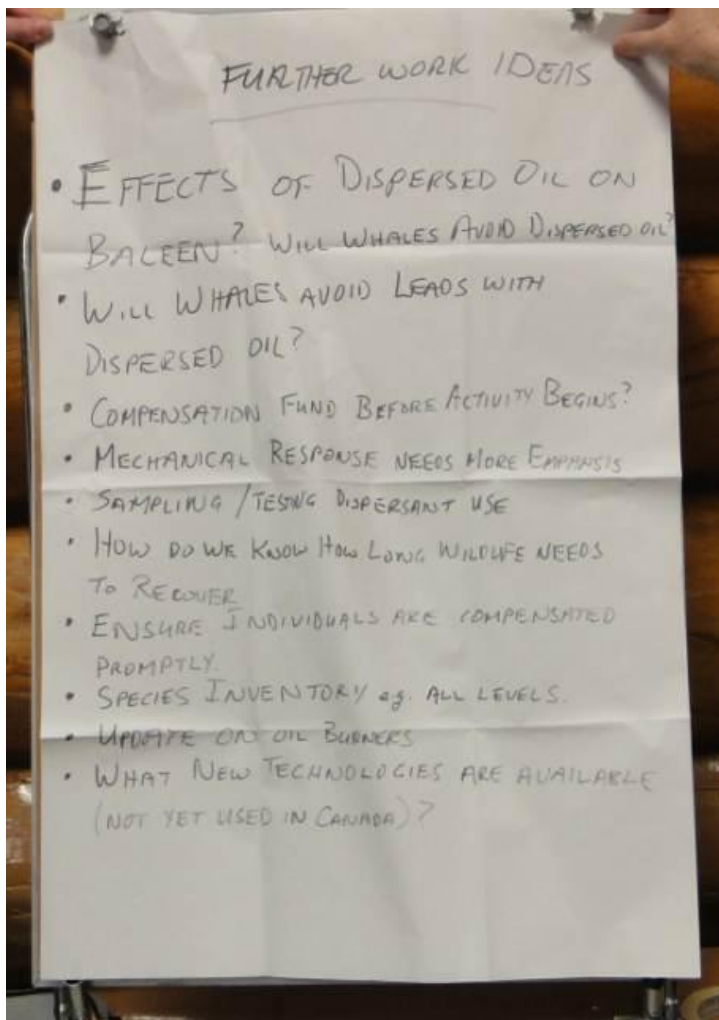 FURTHER WORK IDEAS
• EFFECTS OF DISPERSED OIL ON
BALEEN? WILL WHALES AVOID DISPERSED OIL?
• WILL WHALES AVOID LEADS WITH
DISPERSED OIL?
• COMPENSATION FUND BEFORE ACTIVITY BEGINS?
• MECHANICAL RESPONSE NEEDS MORE EMPHASIS
• SAMPLING / TESTING DISPERSANT USE
• HOW DO WE KNOW HOW LONG WILDLIFE NEEDS
TO RECOVER
• ENSURE INDIVIDUALS ARE COMPENSATED
PROMPTLY.
• SPECIES INVENTORY eg. ALL LEVELS.
• UPDATE ON OIL BURNERS
• WHAT NEW TECHNOLOGIES ARE AVAILABLE
(NOT YET USED IN CANADA)?